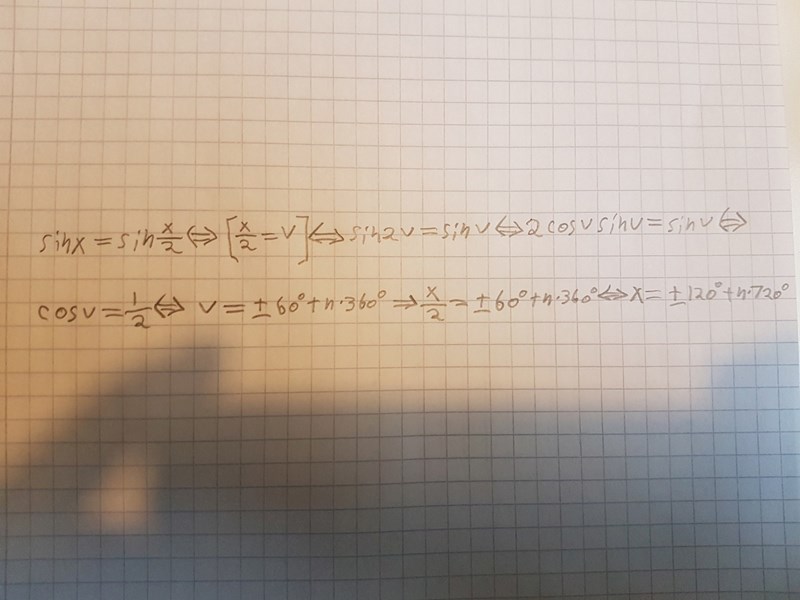 sinx = sin x/2 ⇔ [x/2 = v] ⇔ sin2v = sinv ⇔ 2cosv sinv = sinv ⇔
cosv = 1/2 ⇔ v = ±60° + n·360° ⇒ x/2 = ±60° + n·360° ⇔ x = ±120° + n·720°